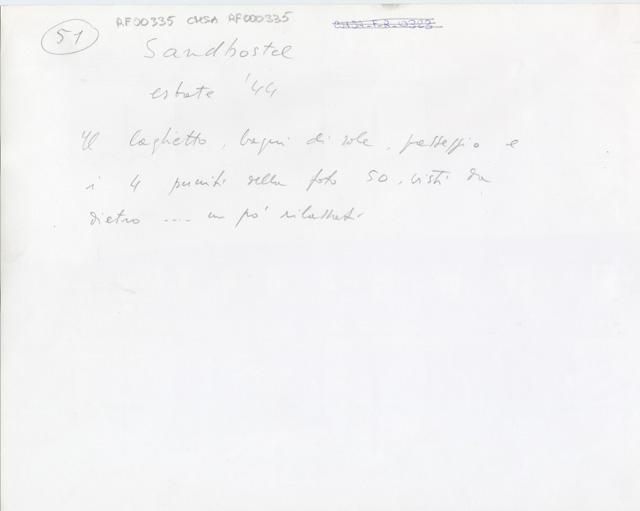 51
AF00335 CMSA AF000335
Sandbostel
estate '44
Il laghetto, bagni di sole, passeggio e
i 4 puniti della foto 50, visti da
dietro .... un po' rilassati